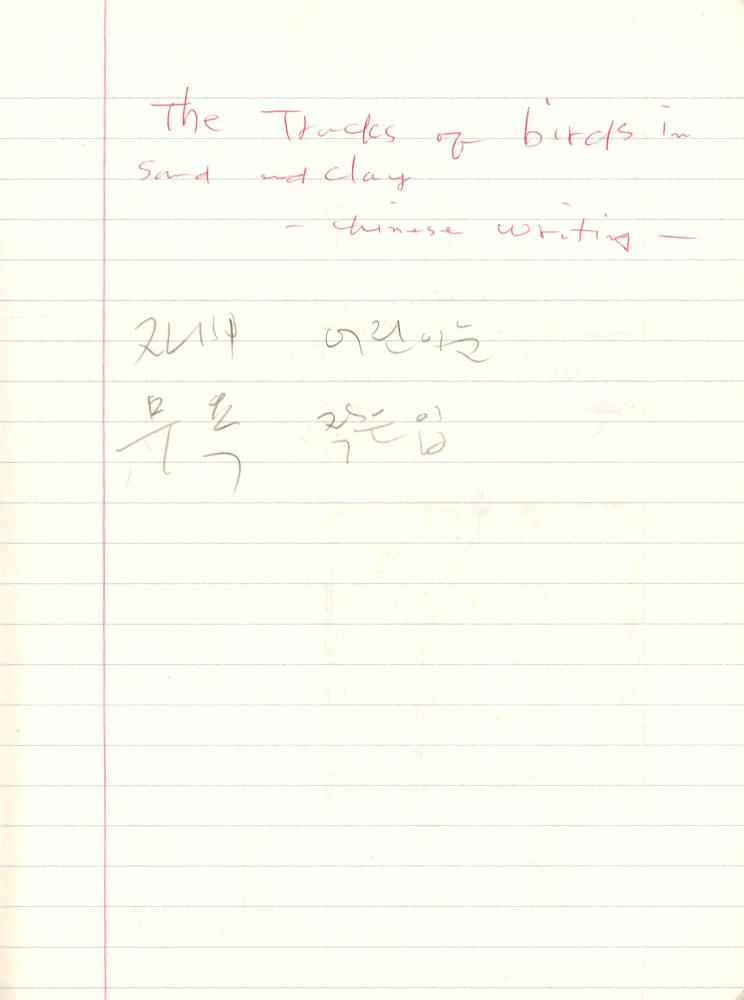 The Tracks of birds in
Sand and clay
- chinese writing -
어린아들
무옥 작은 입